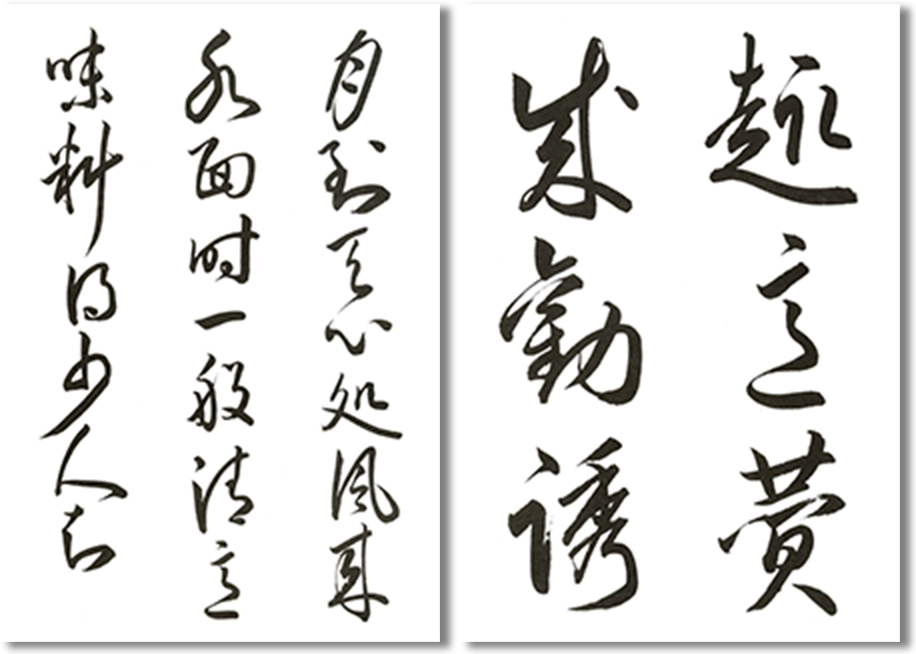 趣意賛
成勧誘
月到天心处风来
水面时一般清意
味料得少人知